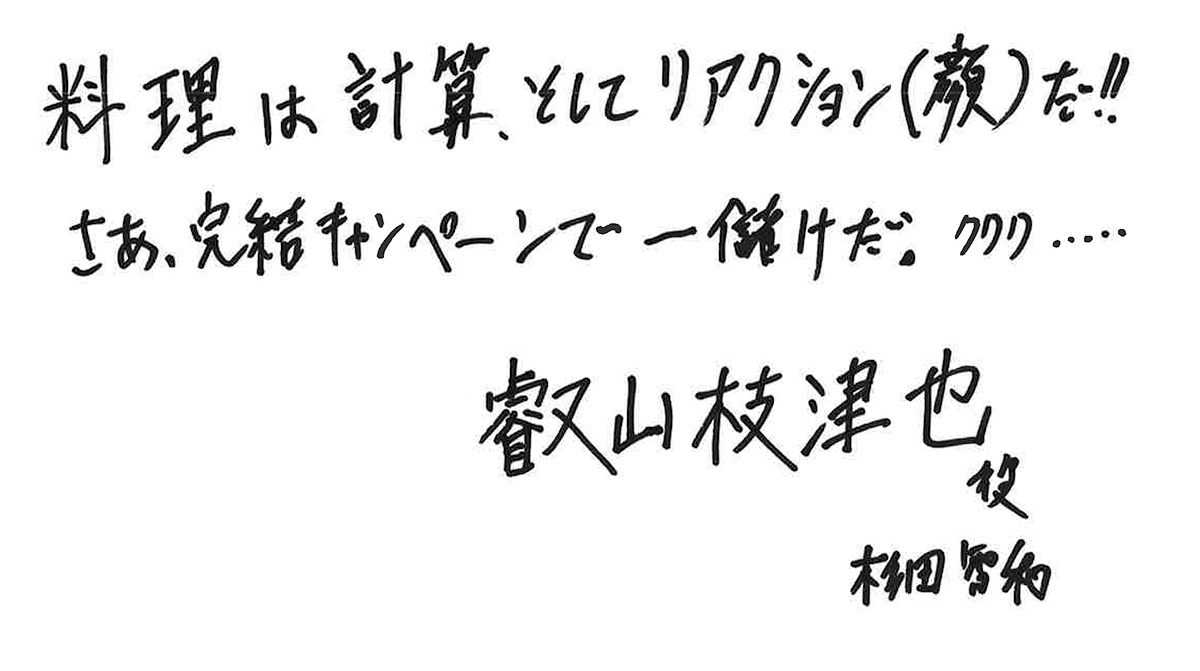 料理は計算、そしてリアクション(顔)だ!!
さあ、完結キャンペーンで一儲けだ。ククク……
叡山枝津也
役
杉田智和